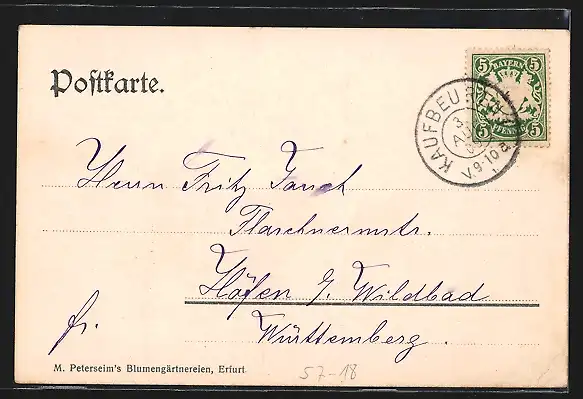 Postkarte.
BAYERN
5 5
5 5
PFENNIG
KAUFBEUREN
3
AUG
V.9-10
Herrn Fritz Jauch
Flaschnermstr.
Höfen b/ Wildbad
fr.
Württemberg.
M. Peterseim's Blumengärtnereien, Erfurt.
57-18